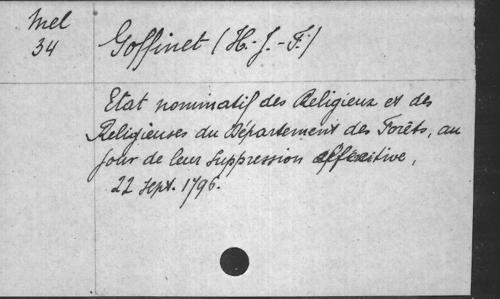 Mel
34
Goffinet (H.-J.-F.)
Etat nominatif des Religieux et des
Religieuses du Département des Forêts, au
jour de leur suppression effective,
22 sept. 1796.